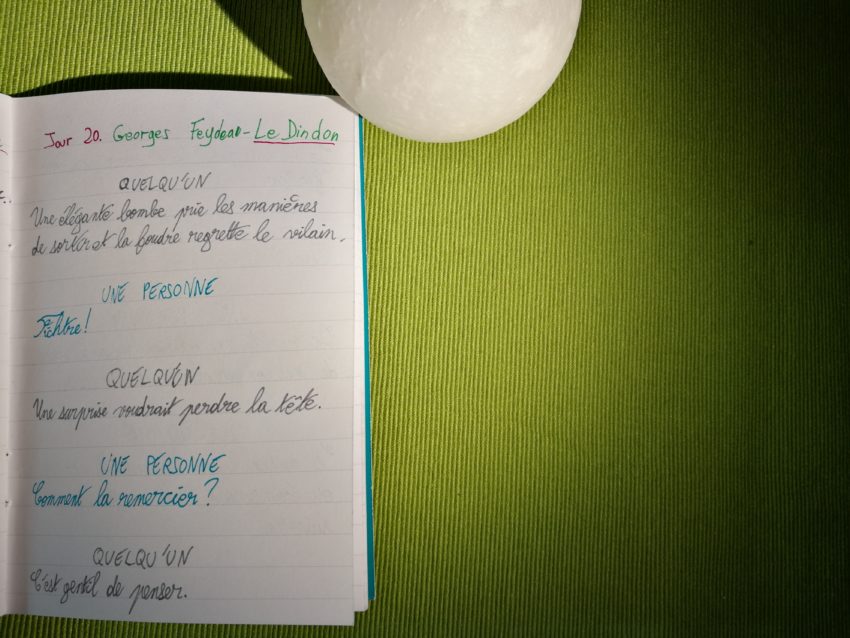 Jour 20. Georges Feydeau - Le Dindon
QUELQU'UN
Une élégante bombe prie les manières
de sortir et la foudre regrette le vilain.
UNE PERSONNE
Fichtre!
QUELQU'UN
Une surprise voudrait perdre la tête.
UNE PERSONNE
Comment la remercier?
QUELQU'UN
C'est gentil de penser.